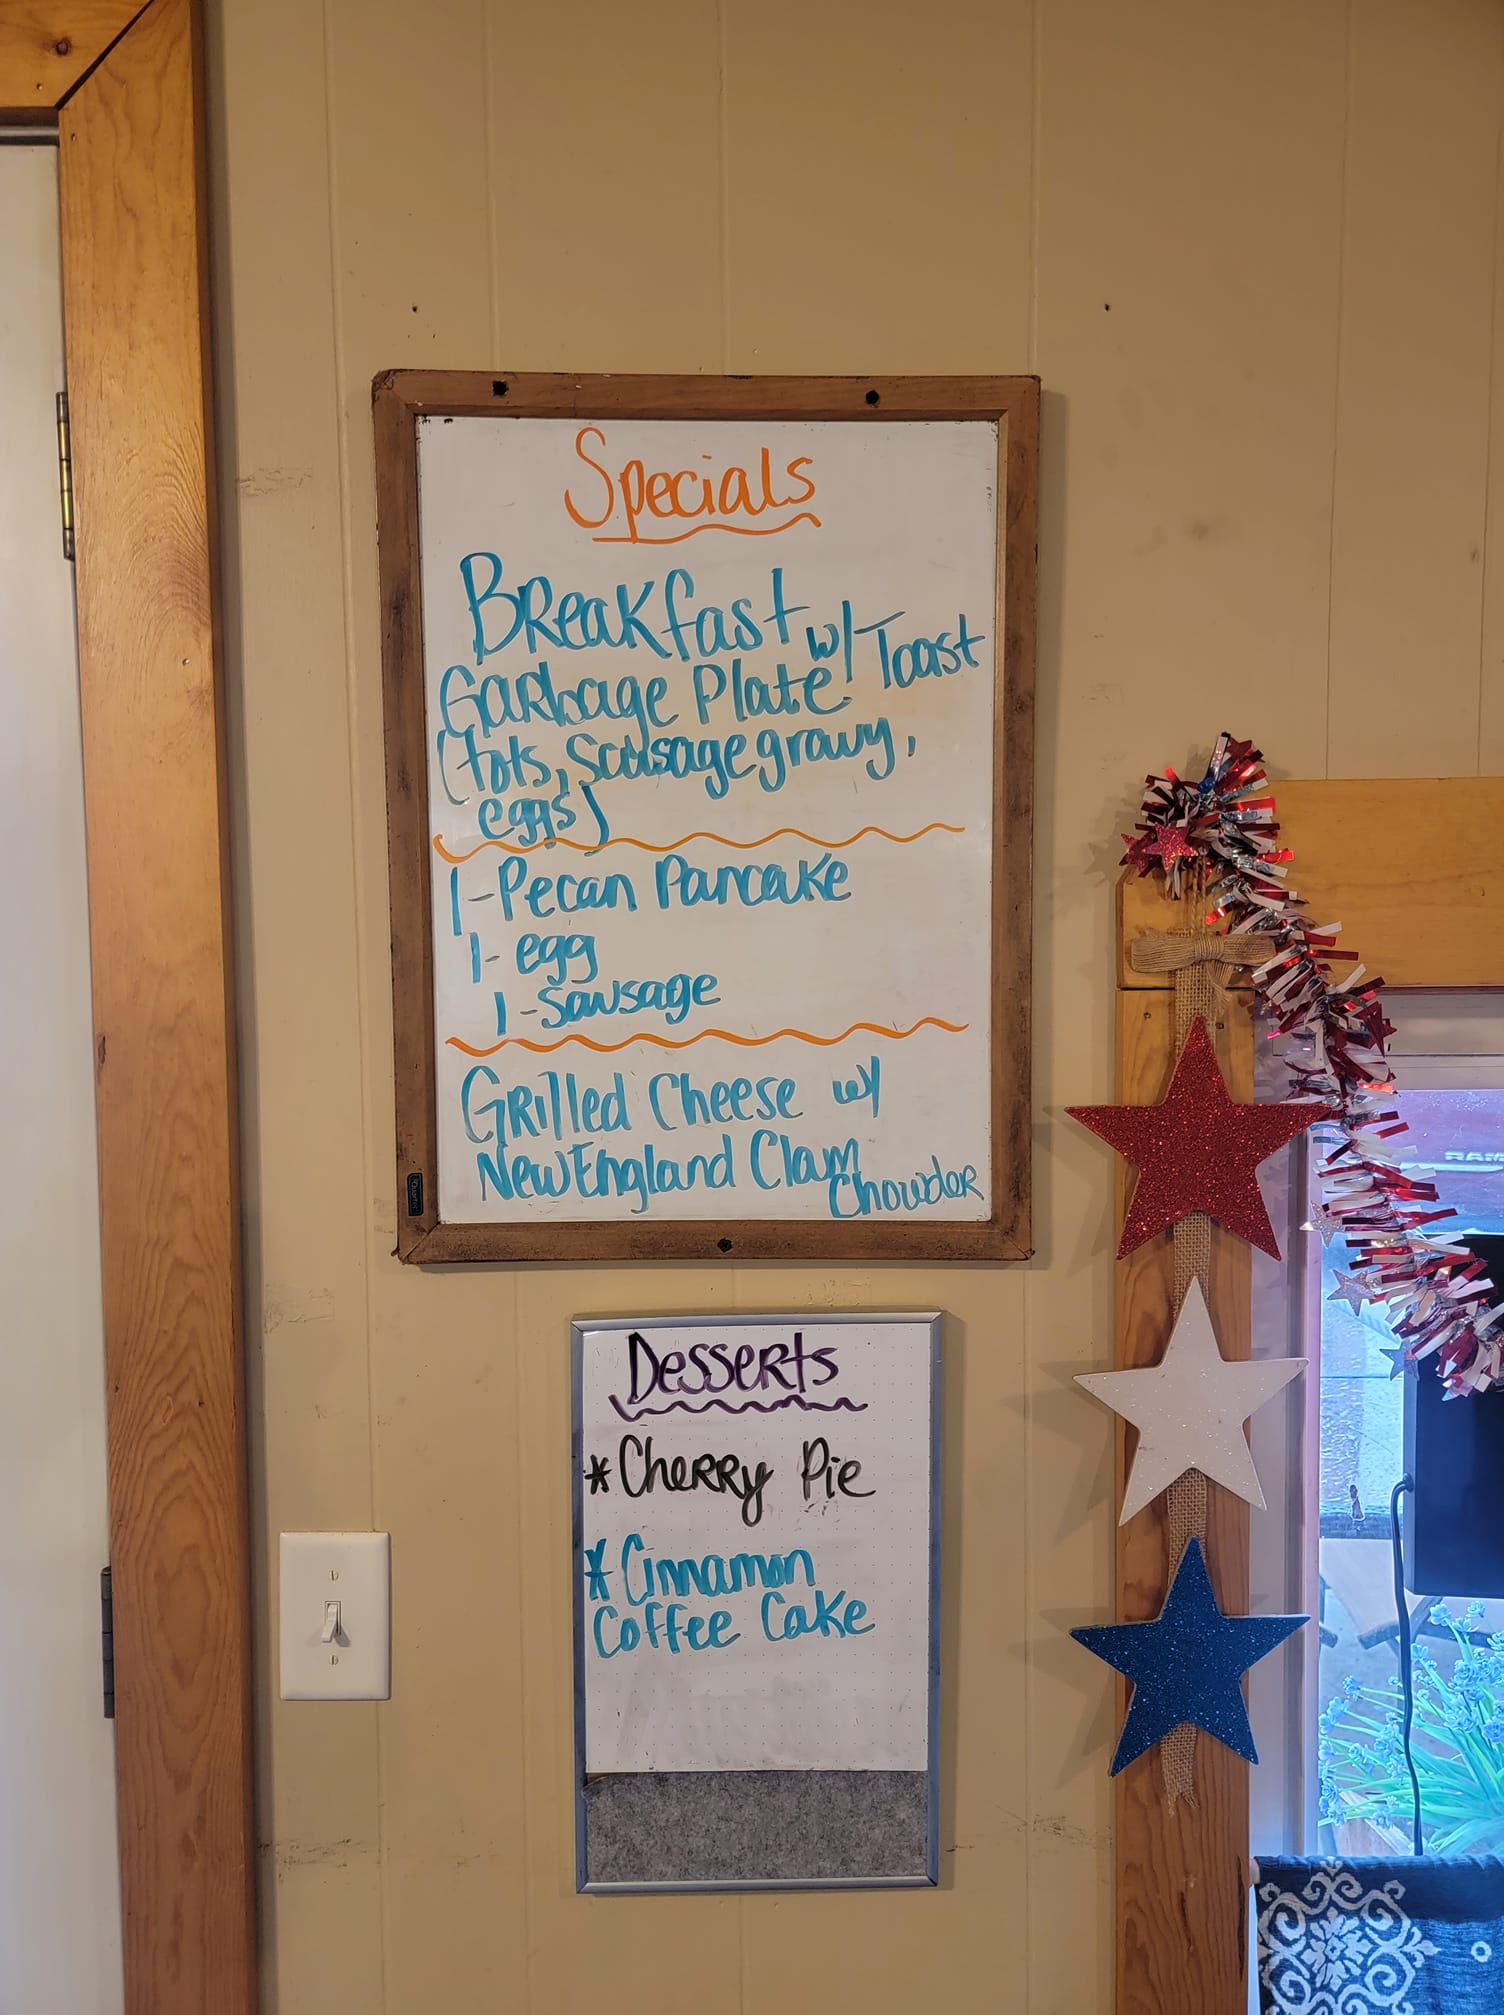 Specials
Breakfast
Garbage Plate w/ Toast
(tots, Sausage gravy,
eggs)
1-Pecan Pancake
1- egg
1-Sausage
Grilled Cheese w/
New England Clam
Chowder
Quartet
Desserts
*Cherry Pie
*Cinnamon
Coffee Cake